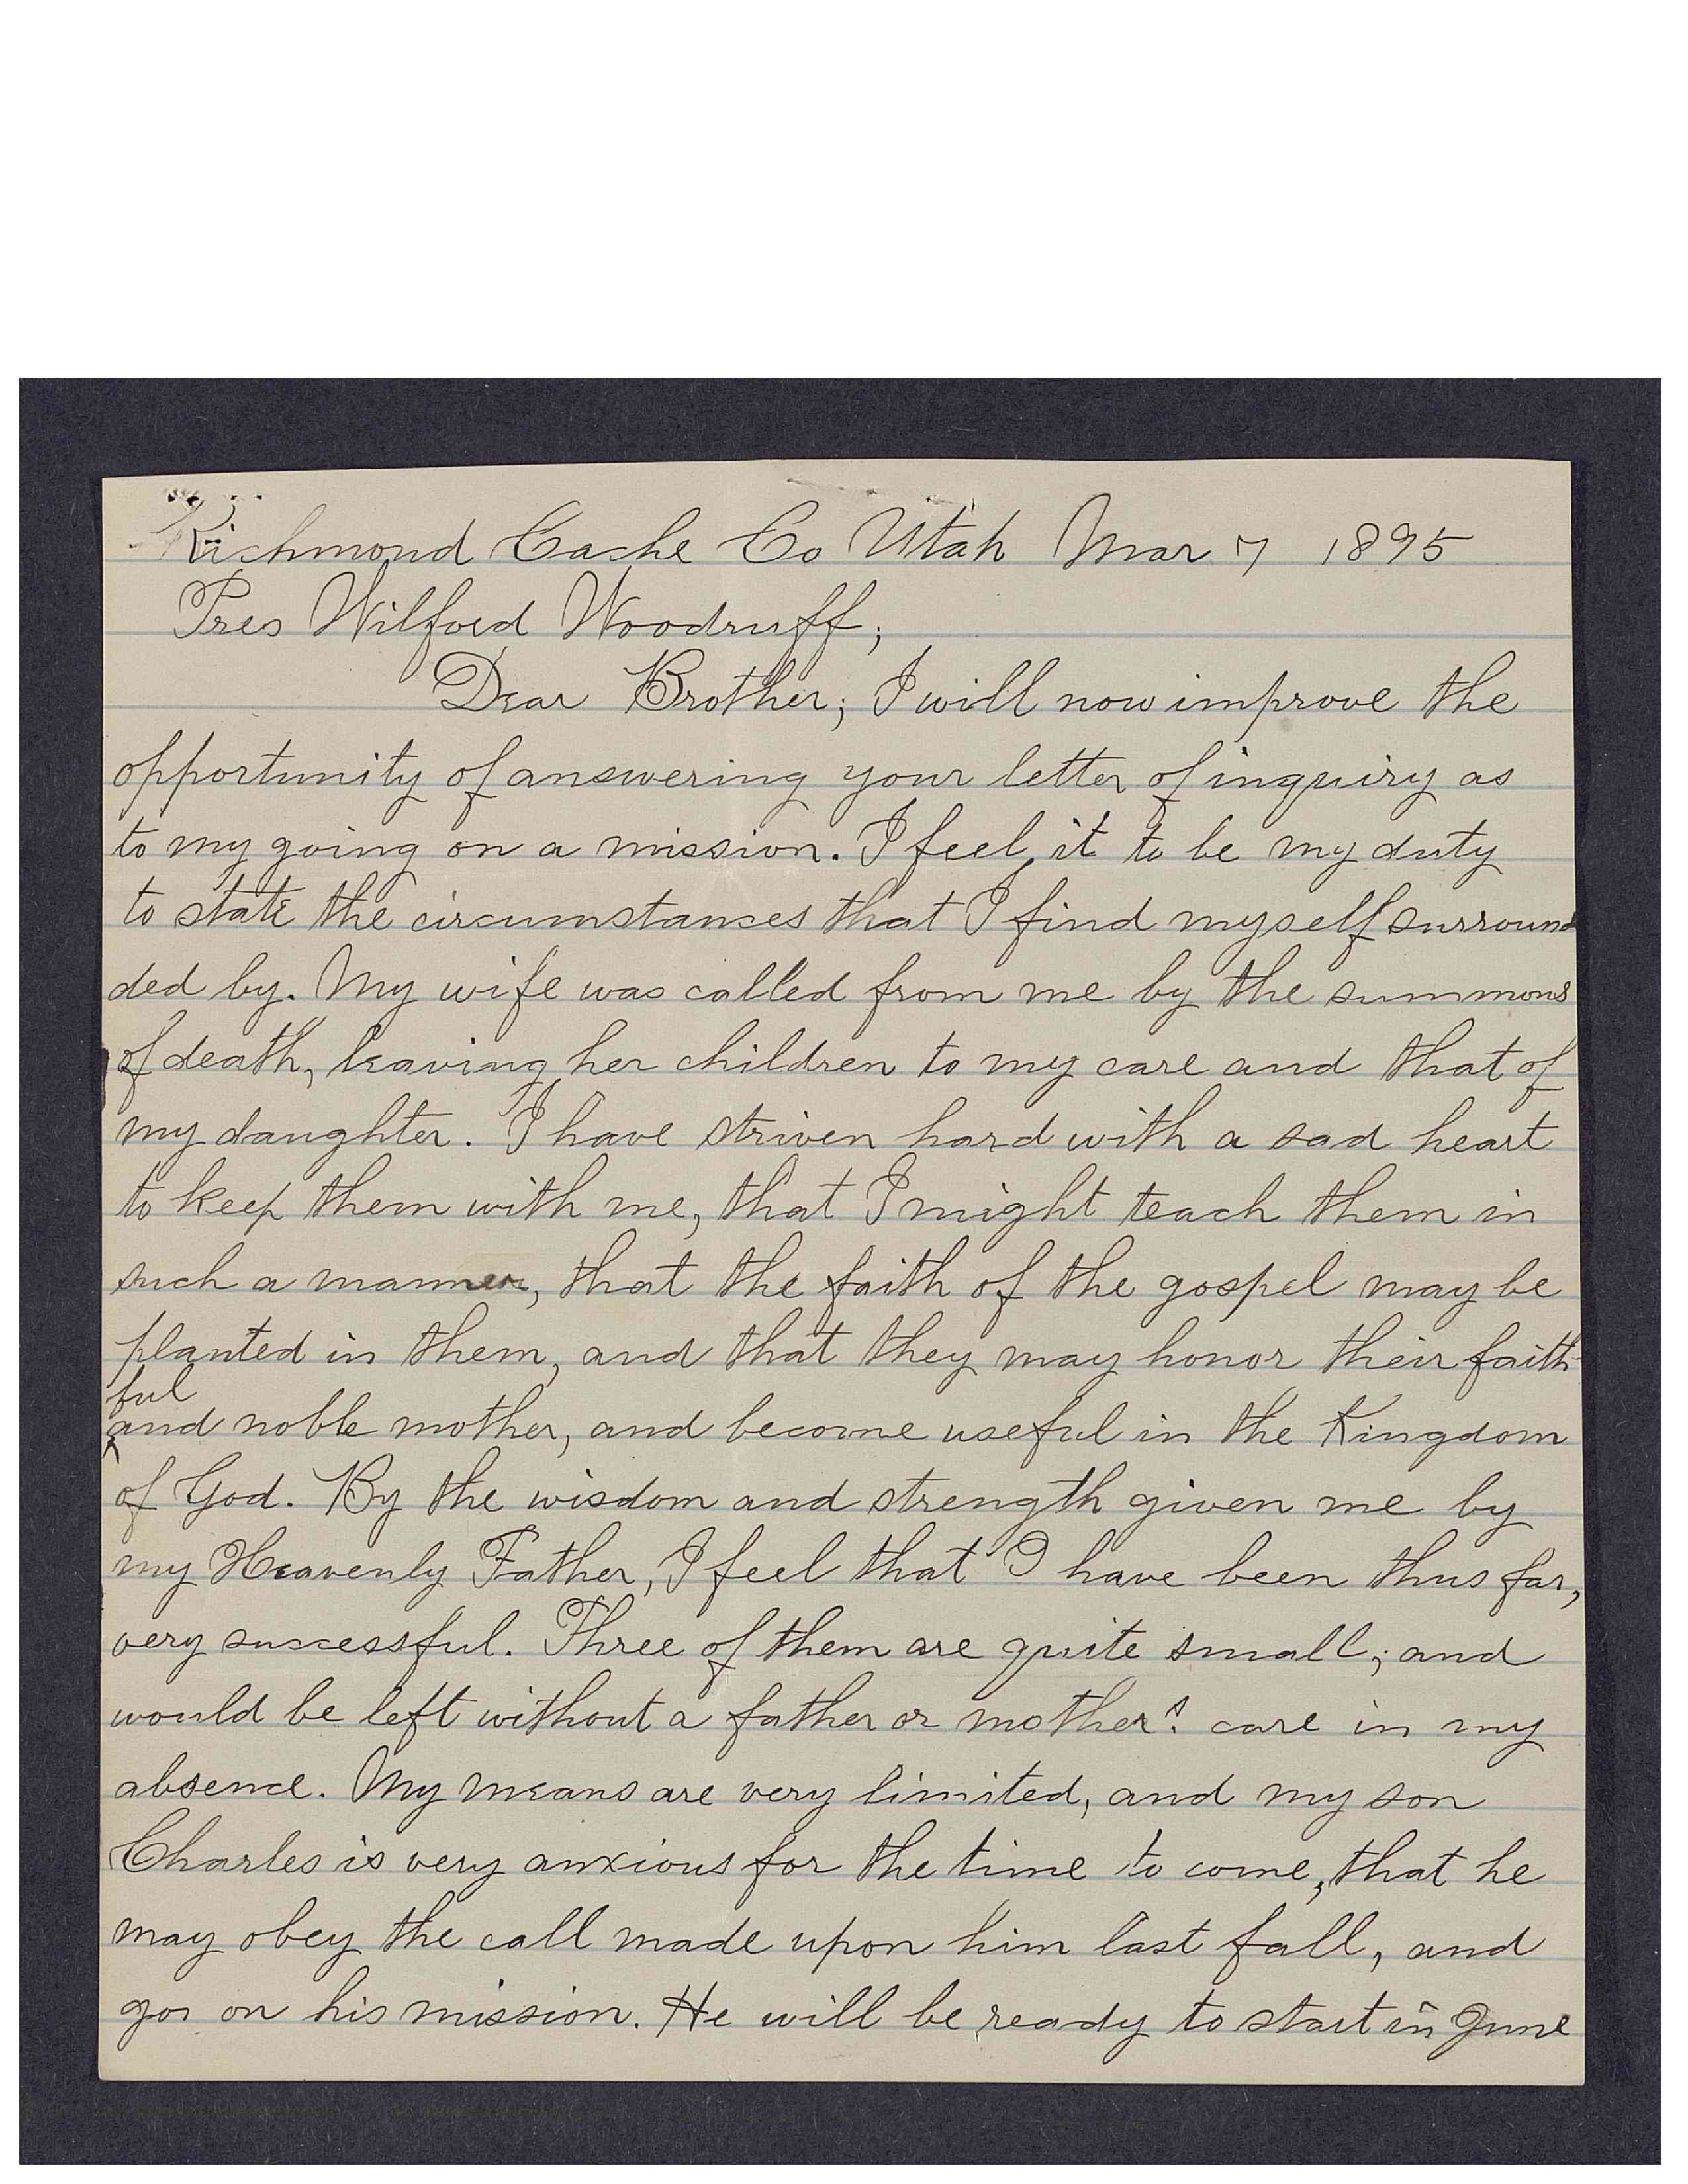 Richmond Cache Co Utah Mar 7 1895
Pres Wilford Woodruff;
Dear Brother; I will now improve the
opportunity of answering your letter of inquiry as
to my going on a mission. I feel it to be my duty
to state the circumstances that I find myself surroun-
ded by. My wife was called from me by the summons
of death, leaving her children to my care and that of
my daughter. I have striven hard with a sad heart
to keep them with me, that I might teach them in
such a manner, that the faith of the gospel may be
planted in them, and that they may honor their faith-
ful
and noble mother, and become useful in the Kingdom
of God. By the wisdom and strength given me by
my Heavenly Father, I feel that I have been thus far,
very successful. Three of them are quite small; and
would be left without a father or mother's care in my
absence. My means are very limited, and my son
Charles is very anxious for the time to come, that he
may obey the call made upon him last fall, and
go on his mission. He will be ready to start in June